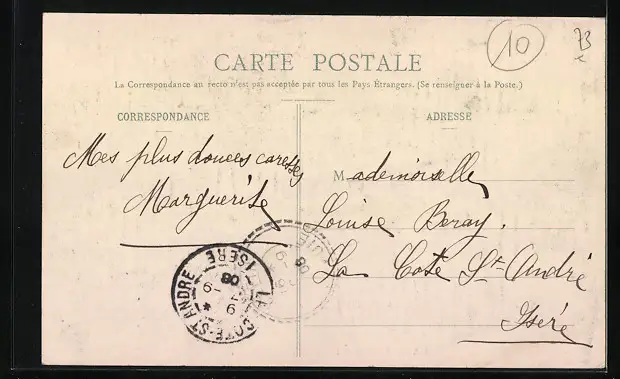 10
73
CARTE POSTALE
La Correspondance au recto n'est pas acceptée par tous les Pays Étrangers. (Se renseigner à la Poste.)
CORRESPONDANCE
ADRESSE
Mes plus douces caresses
Marguerite
Mademoiselle
Louise Beray.
La Cote St André
Isère
LA COTE-ST-ANDRE
ISERE
08